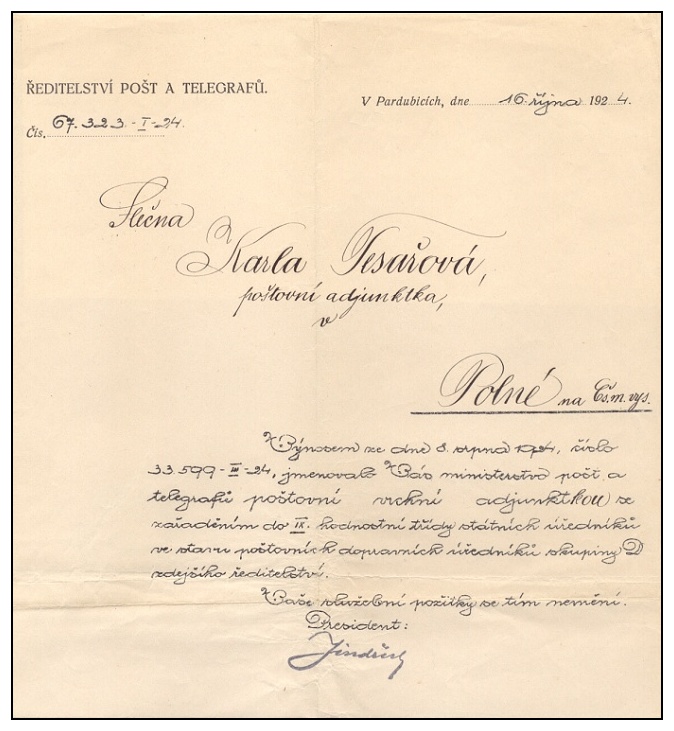 ŘEDITELSTVÍ POŠT A TELEGRAFŮ.
V Pardubicích, dne 16. října 1924.
Čís. 67.323.-I-24.
Slečna
Karla Tesařová,
poštovní adjunktka,
v
Polné na Čs.m.vys.
Výnosem ze dne 8. srpna 1924, číslo
33.599-III-24, jmenovalo Vás ministerstvo pošt a
telegrafů poštovní vrchní adjunktkou se
zařaděním do IX. hodnostní třídy státních úředníků
ve stavu poštovních dopravních úředníků skupiny D
zdejšího ředitelství.
Vaše služební požitky se tím nemění.
President: